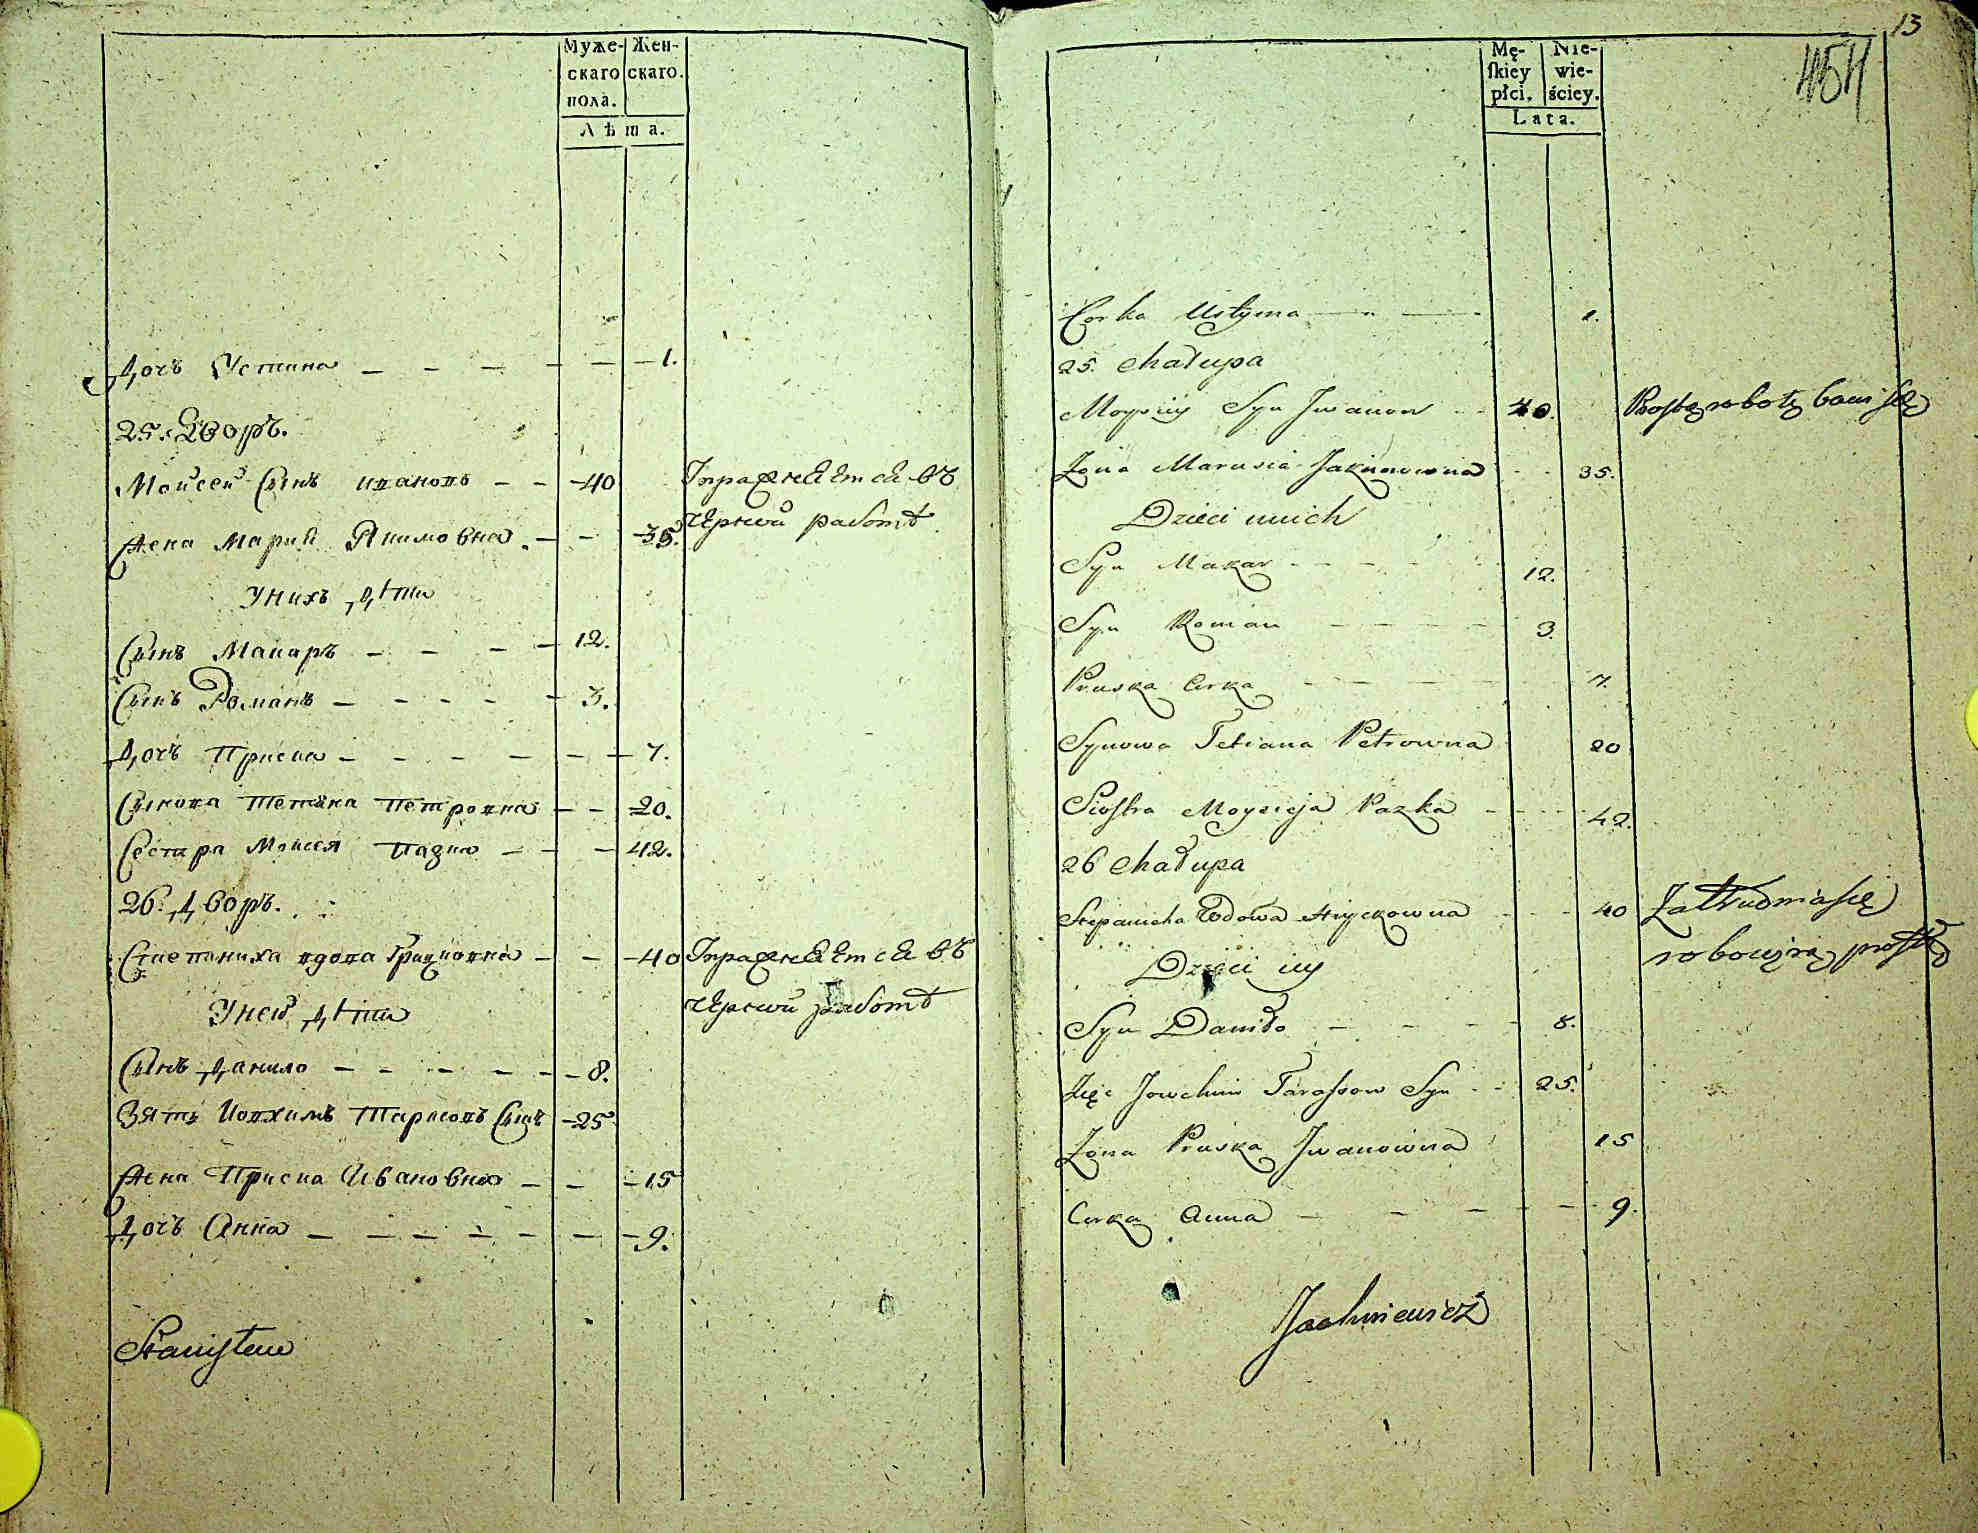 Муже- Жен-
скаго скаго.
пола.
Лѣта.
Дочь Устина — — — — — 1.
25. Дворъ.
Мойсей Сынъ ивановъ — — 40 Упражняется въ
Жена Марья Якимовна — — 35. черной работѣ
У нихъ дѣти
Сынъ Макаръ — — — — 12.
Сынъ Романъ — — — — — 3.
Дочь Приска — — — — — — 7.
Сынова Тетяна Петровна — — 20.
Сестра Мойсея Пазка — — — 42.
26. Дворъ.
Степаниха вдова Грицковна — — 40 Упражняется въ
У ней дѣти черной работѣ
Сынъ Данило — — — — — 8.
Зять Иовхимъ Тарасовъ Сынъ — 25
Жена Приска Ивановна — — — 15
Дочь Анна — — — — — — — 9.
Stanisław
13
454
Mę- Nie-
ſkiey wie-
płci. ściey.
Lata.
Corka Ustyma — — 1.
25. Chałupa
Moysiy Syn Jwanow - - 40. Prostą robotą bawi się
Zona Marusia Jakimowna - - 35.
Dzieci u nich
Syn Makar - - - - 12.
Syn Roman — — — — 3.
Pruska Curka — — — — 7.
Synowa Tetiana Petrowna 20
Siostra Moysieja Pazka - - - 42.
26 Chałupa
Stepanicha Wdowa Hryckowna - - - 40 Zatrudnia się
Dzieci iiy robocizną prostą
Syn Daniło — — — — 8.
Zięć Jowchim Tarassow Syn - - 25.
Zona Pruska Jwanowna 15
Curka Anna — — — — — 9.
Jachniewicz